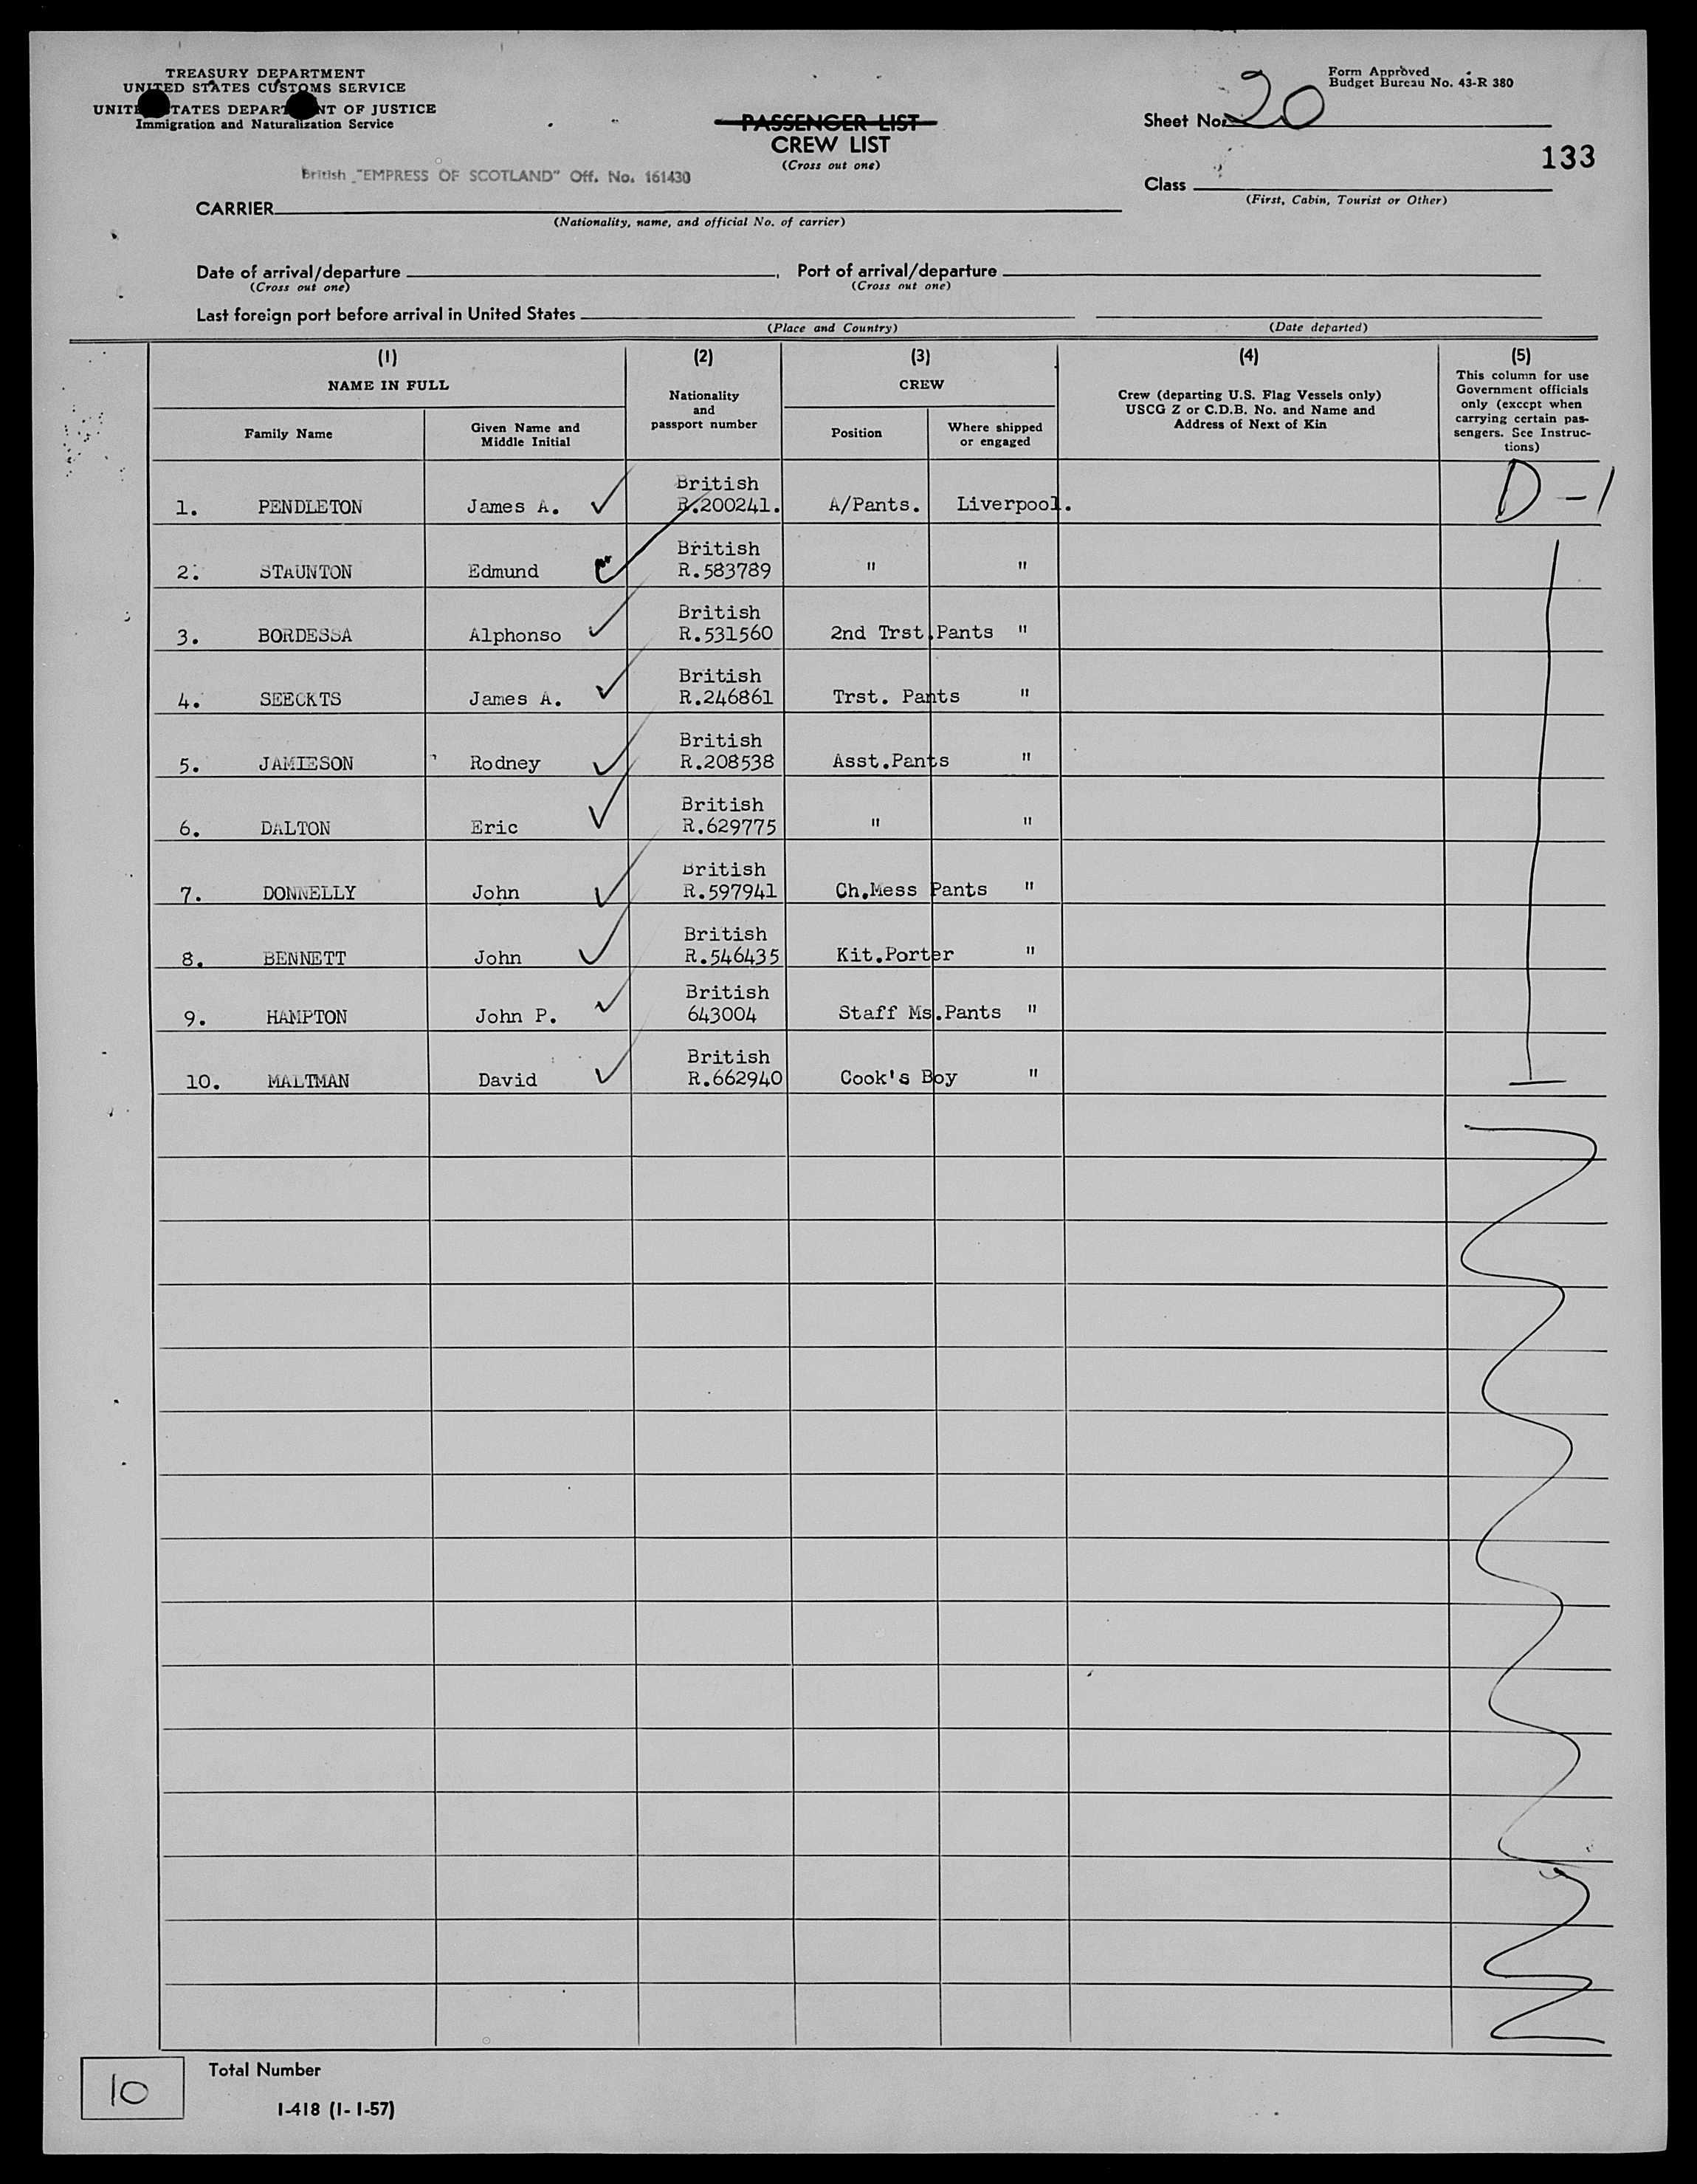 TREASURY DEPARTMENT
UNITED STATES CUSTOMS SERVICE
UNITED STATES DEPARTMENT OF JUSTICE
Immigration and Naturalization Service
Form Approved
Budget Bureau No. 43-R 380
PASSENGER LIST
CREW LIST
(Cross out one)
Sheet No. 20
133
British "EMPRESS OF SCOTLAND" Off. No. 161430
Class
(First, Cabin, Tourist or Other)
CARRIER
(Nationality, name, and official No. of carrier)
Date of arrival/departure , Port of arrival/departure
(Cross out one) (Cross out one)
Last foreign port before arrival in United States
(Place and Country) (Date departed)
(1) (2) (3) (4) (5)
NAME IN FULL
Family Name
Given Name and
Middle Initial
Nationality
and
passport number
CREW
Position
Where shipped
or engaged
Crew (departing U.S. Flag Vessels only)
USCG Z or C.D.B. No. and Name and
Address of Next of Kin
This column for use
Government officials
only (except when
carrying certain pas-
sengers. See Instruc-
tions)
British
1. PENDLETON James A. R.200241. A/Pants. Liverpool. D-1
British
2. STAUNTON Edmund R.583789 " "
British
3. BORDESSA Alphonso R.531560 2nd Trst.Pants "
British
4. SEECKTS James A. R.246861 Trst. Pants "
British
5. JAMIESON Rodney R.208538 Asst.Pants "
British
6. DALTON Eric R.629775 " "
British
7. DONNELLY John R.597941 Ch.Mess Pants "
British
8. BENNETT John R.546435 Kit.Porter "
British
9. HAMPTON John P. 643004 Staff Ms.Pants "
British
10. MALTMAN David R.662940 Cook's Boy "
10
Total Number
I-418 (1-1-57)